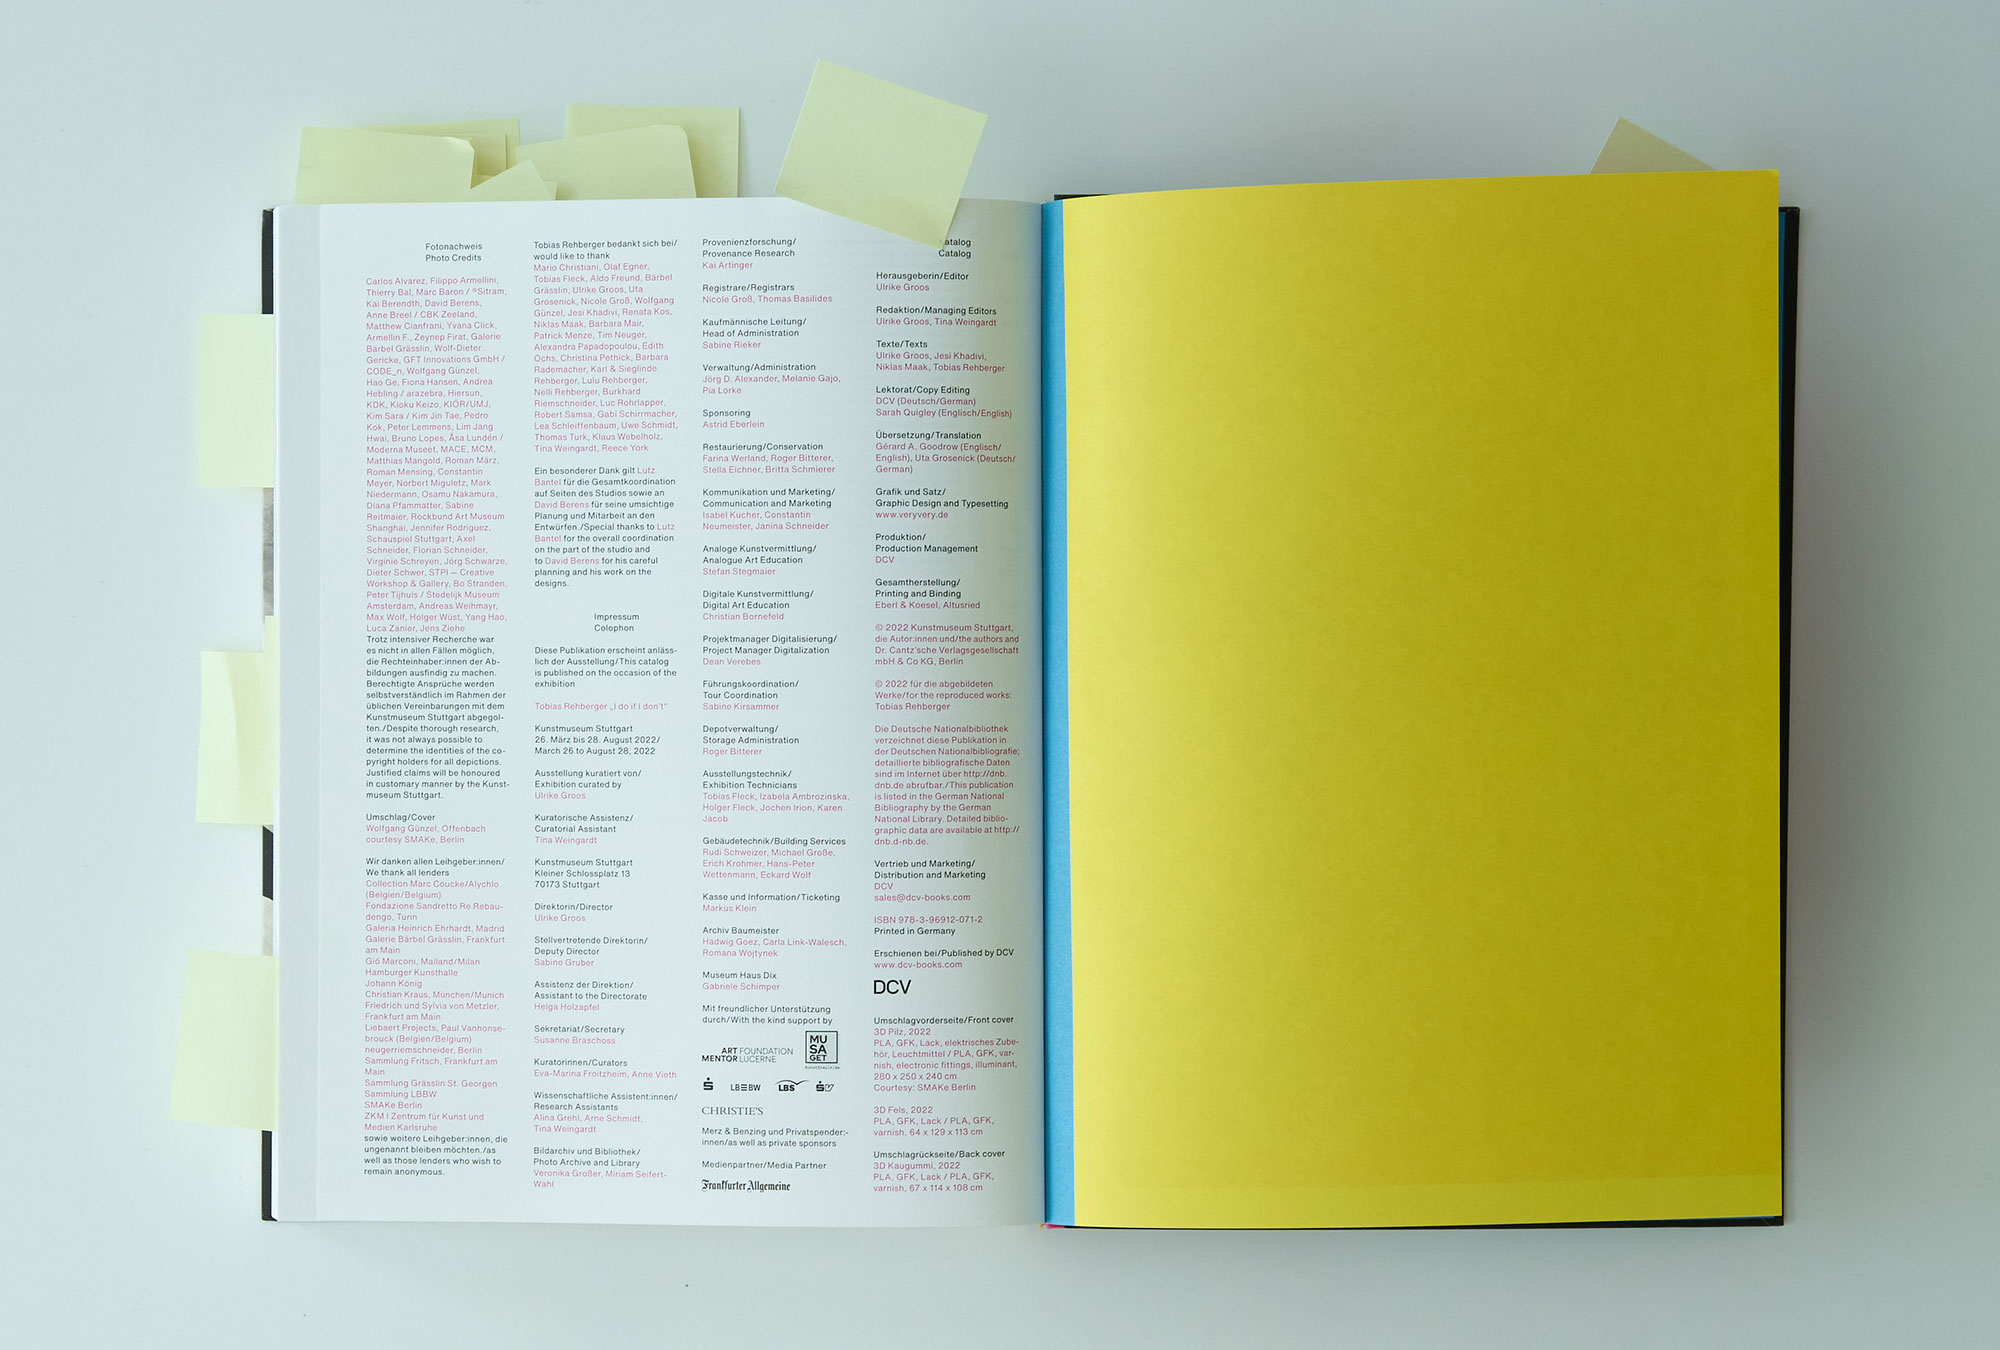 Fotonachweis
Photo Credits
Carlos Alvarez, Filippo Armellini,
Thierry Bal, Marc Baron / ®Sitram,
Kai Berendth, David Berens,
Anne Breel / CBK Zeeland,
Matthew Cianfrani, Yvana Click,
Armellin F., Zeynep Firat, Galerie
Bärbel Grässlin, Wolf-Dieter
Gericke, GFT Innovations GmbH /
CODE_n, Wolfgang Günzel,
Hao Ge, Fiona Hansen, Andrea
Hebling / arazebra, Hiersun,
KDK, Kioku Keizo, KIOR/UMJ,
Kim Sara / Kim Jin Tae, Pedro
Kok, Peter Lemmens, Lim Jang
Hwai, Bruno Lopes, Åsa Lundén /
Moderna Museet, MACE, MCM,
Matthias Mangold, Roman März,
Roman Mensing, Constantin
Meyer, Norbert Miguletz, Mark
Niedermann, Osamu Nakamura,
Diana Pfammatter, Sabine
Reitmaier, Rockbund Art Museum
Shanghai, Jennifer Rodriguez,
Schauspiel Stuttgart, Axel
Schneider, Florian Schneider,
Virginie Schreyen, Jörg Schwarze,
Dieter Schwer, STPI — Creative
Workshop & Gallery, Bo Stranden,
Peter Tijhuis / Stedelijk Museum
Amsterdam, Andreas Weihmayr,
Max Wolf, Holger Wüst, Yang Hao,
Luca Zanier, Jens Ziehe
Trotz intensiver Recherche war
es nicht in allen Fällen möglich,
die Rechteinhaber:innen der Ab-
bildungen ausfindig zu machen.
Berechtigte Ansprüche werden
selbstverständlich im Rahmen der
üblichen Vereinbarungen mit dem
Kunstmuseum Stuttgart abgegol-
ten./Despite thorough research,
it was not always possible to
determine the identities of the co-
pyright holders for all depictions.
Justified claims will be honoured
in customary manner by the Kunst-
museum Stuttgart.
Umschlag/Cover
Wolfgang Günzel, Offenbach
courtesy SMAKe, Berlin
Wir danken allen Leihgeber:innen/
We thank all lenders
Collection Marc Coucke/Alychlo
(Belgien/Belgium)
Fondazione Sandretto Re Rebau-
dengo, Turin
Galeria Heinrich Ehrhardt, Madrid
Galerie Bärbel Grässlin, Frankfurt
am Main
Gió Marconi, Mailand/Milan
Hamburger Kunsthalle
Johann König
Christian Kraus, München/Munich
Friedrich und Sylvia von Metzler,
Frankfurt am Main
Liebaert Projects, Paul Vanhonse-
brouck (Belgien/Belgium)
neugerriemschneider, Berlin
Sammlung Fritsch, Frankfurt am
Main
Sammlung Grässlin St. Georgen
Sammlung LBBW
SMAKe Berlin
ZKM I Zentrum für Kunst und
Medien Karlsruhe
sowie weitere Leihgeber:innen, die
ungenannt bleiben möchten./as
well as those lenders who wish to
remain anonymous.
Tobias Rehberger bedankt sich bei/
would like to thank
Mario Christiani, Olaf Egner,
Tobias Fleck, Aldo Freund, Bärbel
Grässlin, Ulrike Groos, Uta
Grosenick, Nicole Groß, Wolfgang
Günzel, Jesi Khadivi, Renata Kos,
Niklas Maak, Barbara Mair,
Patrick Menze, Tim Neuger,
Alexandra Papadopoulou, Edith
Ochs, Christina Pethick, Barbara
Rademacher, Karl & Sieglinde
Rehberger, Lulu Rehberger,
Nelli Rehberger, Burkhard
Riemschneider, Luc Rohrlapper,
Robert Samsa, Gabi Schirrmacher,
Lea Schleiffenbaum, Uwe Schmidt,
Thomas Turk, Klaus Webelholz,
Tina Weingardt, Reece York
Ein besonderer Dank gilt Lutz
Bantel für die Gesamtkoordination
auf Seiten des Studios sowie an
David Berens für seine umsichtige
Planung und Mitarbeit an den
Entwürfen./Special thanks to Lutz
Bantel for the overall coordination
on the part of the studio and
to David Berens for his careful
planning and his work on the
designs.
Impressum
Colophon
Diese Publikation erscheint anläss-
lich der Ausstellung/This catalog
is published on the occasion of the
exhibition
Tobias Rehberger „I do if I don't"
Kunstmuseum Stuttgart
26. März bis 28. August 2022/
March 26 to August 28, 2022
Ausstellung kuratiert von/
Exhibition curated by
Ulrike Groos
Kuratorische Assistenz/
Curatorial Assistant
Tina Weingardt
Kunstmuseum Stuttgart
Kleiner Schlossplatz 13
70173 Stuttgart
Direktorin/Director
Ulrike Groos
Stellvertretende Direktorin/
Deputy Director
Sabine Gruber
Assistenz der Direktion/
Assistant to the Directorate
Helga Holzapfel
Sekretariat/Secretary
Susanne Braschoss
Kuratorinnen/Curators
Eva-Marina Froitzheim, Anne Vieth
Wissenschaftliche Assistent:innen/
Research Assistants
Alina Grehl, Arne Schmidt,
Tina Weingardt
Bildarchiv und Bibliothek/
Photo Archive and Library
Veronika Großer, Miriam Seifert-
Wahl
Provenienzforschung/
Provenance Research
Kai Artinger
Registrare/Registrars
Nicole Groß, Thomas Basilides
Kaufmännische Leitung/
Head of Administration
Sabine Rieker
Verwaltung/Administration
Jörg D. Alexander, Melanie Gajo,
Pia Lorke
Sponsoring
Astrid Eberlein
Restaurierung/Conservation
Farina Werland, Roger Bitterer,
Stella Eichner, Britta Schmierer
Kommunikation und Marketing/
Communication and Marketing
Isabel Kucher, Constantin
Neumeister, Janina Schneider
Analoge Kunstvermittlung/
Analogue Art Education
Stefan Stegmaier
Digitale Kunstvermittlung/
Digital Art Education
Christian Bornefeld
Projektmanager Digitalisierung/
Project Manager Digitalization
Dean Verebes
Führungskoordination/
Tour Coordination
Sabine Kirsammer
Depotverwaltung/
Storage Administration
Roger Bitterer
Ausstellungstechnik/
Exhibition Technicians
Tobias Fleck, Izabela Ambrozinska,
Holger Fleck, Jochen Irion, Karen
Jacob
Gebäudetechnik/Building Services
Rudi Schweizer, Michael Große,
Erich Krohmer, Hans-Peter
Wettenmann, Eckard Wolf
Kasse und Information/Ticketing
Markus Klein
Archiv Baumeister
Hadwig Goez, Carla Link-Walesch,
Romana Wojtynek
Museum Haus Dix
Gabriele Schimper
Mit freundlicher Unterstützung
durch/With the kind support by
ART FOUNDATION
MENTOR LUCERNE
MU
SA
GET
LBBW
LBS
CHRISTIE'S
Merz & Benzing und Privatspender:-
innen/as well as private sponsors
Medienpartner/Media Partner
Frankfurter Allgemeine
atalog
Catalog
Herausgeberin/Editor
Ulrike Groos
Redaktion/Managing Editors
Ulrike Groos, Tina Weingardt
Texte/Texts
Ulrike Groos, Jesi Khadivi,
Niklas Maak, Tobias Rehberger
Lektorat/Copy Editing
DCV (Deutsch/German)
Sarah Quigley (Englisch/English)
Übersetzung/Translation
Gérard A. Goodrow (Englisch/
English), Uta Grosenick (Deutsch/
German)
Grafik und Satz/
Graphic Design and Typesetting
www.veryvery.de
Produktion/
Production Management
DCV
Gesamtherstellung/
Printing and Binding
Eberl & Koesel, Altusried
© 2022 Kunstmuseum Stuttgart,
die Autor:innen und/the authors and
Dr. Cantz'sche Verlagsgesellschaft
mbH & Co KG, Berlin
© 2022 für die abgebildeten
Werke/for the reproduced works:
Tobias Rehberger
Die Deutsche Nationalbibliothek
verzeichnet diese Publikation in
der Deutschen Nationalbibliografie;
detaillierte bibliografische Daten
sind im Internet über http://dnb.
dnb.de abrufbar./This publication
is listed in the German National
Bibliography by the German
National Library. Detailed biblio-
graphic data are available at http://
dnb.d-nb.de.
Vertrieb und Marketing/
Distribution and Marketing
DCV
sales@dcv-books.com
ISBN 978-3-96912-071-2
Printed in Germany
Erschienen bei/Published by DCV
www.dcv-books.com
DCV
Umschlagvorderseite/Front cover
3D Pilz, 2022
PLA, GFK, Lack, elektrisches Zube-
hör, Leuchtmittel / PLA, GFK, var-
nish, electronic fittings, illuminant,
280 x 250 x 240 cm
Courtesy: SMAKe Berlin
3D Fels, 2022
PLA, GFK, Lack / PLA, GFK,
varnish, 64 x 129 x 113 cm
Umschlagrückseite/Back cover
3D Kaugummi, 2022
PLA, GFK, Lack / PLA, GFK,
varnish, 67 x 114 x 108 cm